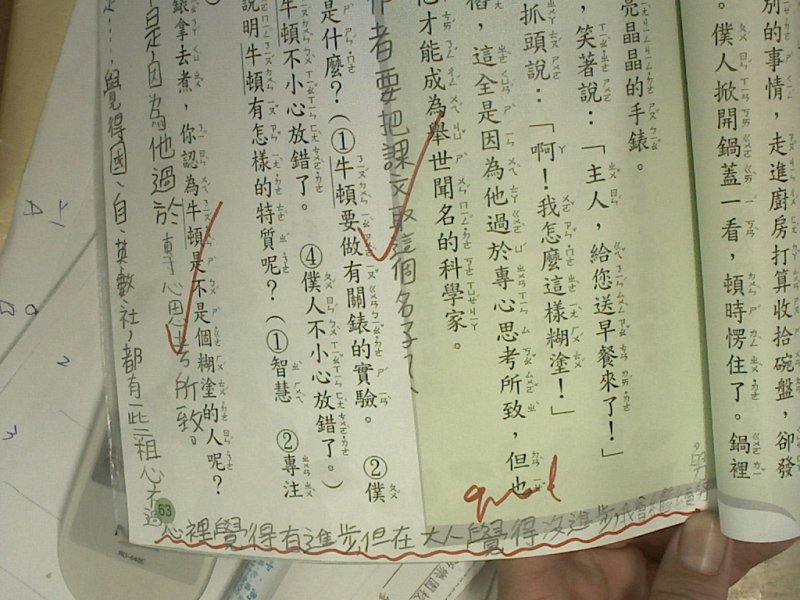 別的事情，走進廚房打算收拾碗盤，卻發
。僕人掀開鍋蓋一看，頓時愣住了。鍋裡
亮晶晶的手錶。
，笑著說：「主人，給您送早餐來了！」
抓頭說：「啊！我怎麼這樣糊塗！」
，這全是因為他過於專心思考所致，但也
才能成為舉世聞名的科學家。
作者要把課文取這個名子？
是什麼？（①牛頓要做有關錶的實驗。 ②僕
牛頓不小心放錯了。 ④僕人不小心放錯了。）
說明牛頓有怎樣的特質呢？（①智慧 ②專注
錶拿去煮，你認為牛頓是不是個糊塗的人呢？
是因為他過於專心思考所致。
覺得國、自、英數社，都有一些粗心不過
心裡覺得有進步，但在大人覺得沒進步
good
53